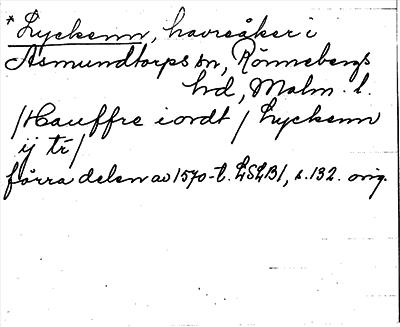 * Lyckenn, havreåker i
Asmundtorps sn, Rönnebergs
hd, Malm. l.
/Hauffre iordt / Lyckenn
ij tr/
förra delen av 1570-t. LSLB1, s. 132. orig.